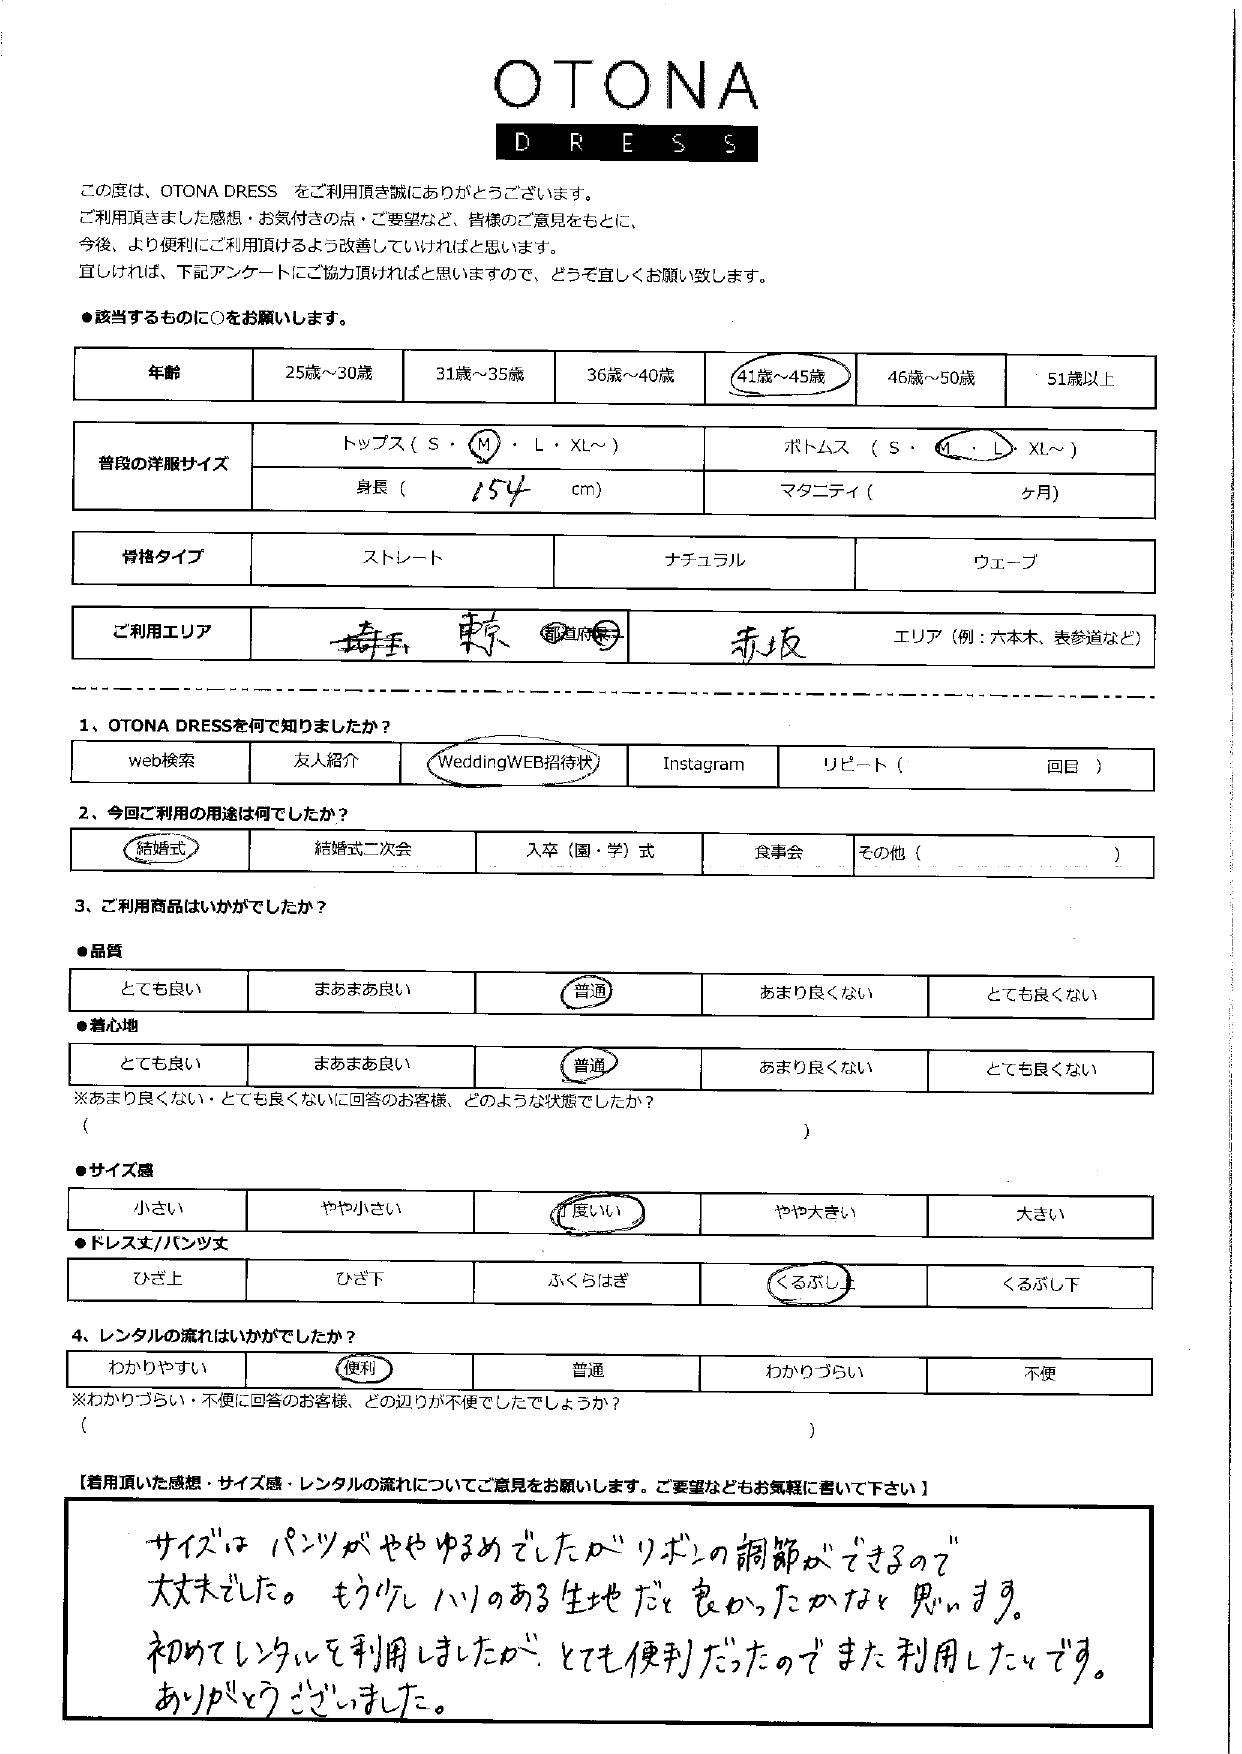 OTONA
DRESS
この度は、OTONA DRESS をご利用頂き誠にありがとうございます。
ご利用頂きました感想・お気付きの点・ご要望など、皆様のご意見をもとに、
今後、より便利にご利用頂けるよう改善していければと思います。
宜しければ、下記アンケートにご協力頂ければと思いますので、どうぞ宜しくお願い致します。
●該当するものに○をお願いします。
年齢 25歳～30歳 31歳～35歳 36歳～40歳 41歳～45歳 46歳～50歳 51歳以上
普段の洋服サイズ トップス ( S ・ M ・ L ・ XL～ ) ボトムス ( S ・ M ・ L ・ XL～ )
身長 ( 154 cm) マタニティ ( ヶ月)
骨格タイプ ストレート ナチュラル ウェーブ
ご利用エリア 埼玉 東京 都道府県 赤坂 エリア（例：六本木、表参道など）
1、OTONA DRESSを何で知りましたか？
web検索 友人紹介 WeddingWEB招待状 Instagram リピート ( 回目 )
2、今回ご利用の用途は何でしたか？
結婚式 結婚式二次会 入卒（園・学）式 食事会 その他 ( )
3、ご利用商品はいかがでしたか？
●品質
とても良い まあまあ良い 普通 あまり良くない とても良くない
●着心地
とても良い まあまあ良い 普通 あまり良くない とても良くない
※あまり良くない・とても良くないに回答のお客様、どのような状態でしたか？
( )
●サイズ感
小さい やや小さい 丁度いい やや大きい 大きい
●ドレス丈/パンツ丈
ひざ上 ひざ下 ふくらはぎ くるぶし上 くるぶし下
4、レンタルの流れはいかがでしたか？
わかりやすい 便利 普通 わかりづらい 不便
※わかりづらい・不便に回答のお客様、どの辺りが不便でしたでしょうか？
( )
【着用頂いた感想・サイズ感・レンタルの流れについてご意見をお願いします。ご要望などもお気軽に書いて下さい】
サイズは パンツがややゆるめでしたが リボンの調節ができるので
大丈夫でした。 もう少し ハリのある生地だと良かったかなと思います。
初めてレンタルを利用しましたが、とても便利だったのでまた利用したいです。
ありがとうございました。